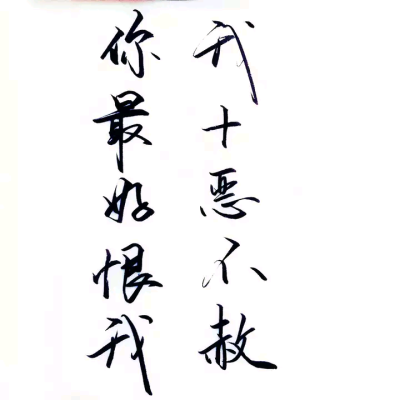 我十恶不赦
你最好恨我